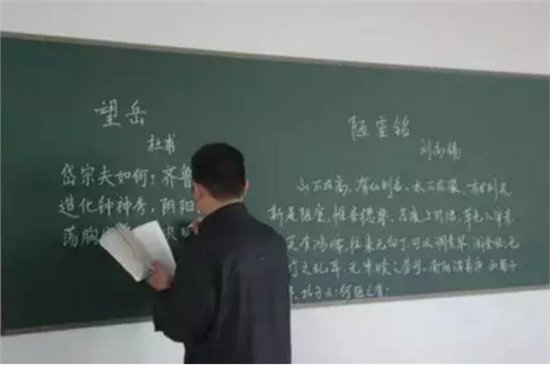 望岳
杜甫
岱宗夫如何？齐鲁
造化钟神秀，阴阳
荡胸 决
陋室铭
刘禹锡
山不在高，有仙则名。水不在深，有龙则灵
斯是陋室，惟吾德馨。苔痕上阶绿，草色入帘青
笑有鸿儒，往来无白丁。可以调素琴，阅金经。无
竹之乱耳，无案牍之劳形。南阳诸葛庐 西蜀子
孔子云：何陋之有？